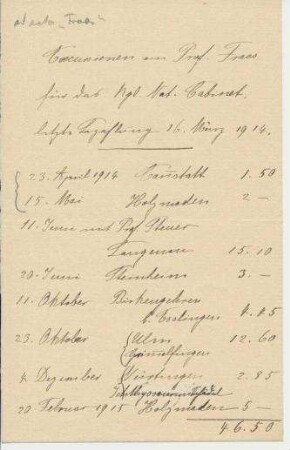 ad acta "Fraas"
Excursionen von Prof. Fraas
für das Kgl. Nat. Cabinet.
letzte Bezahlung 16. März 1914.
23. April 1914 Cannstatt 1.50
15. Mai Holzmaden 2 -
11. Juni mit Prof. Steuer
Langenau 15.10
20. Juni Steinheim 3.-
11. Oktober Birkengehren
b. Esslingen 4.05
23. Oktober Ulm 12.60
4. Dezember Nürtingen 2.85
20 Februar 1915 Holzmaden 5 -
46.50